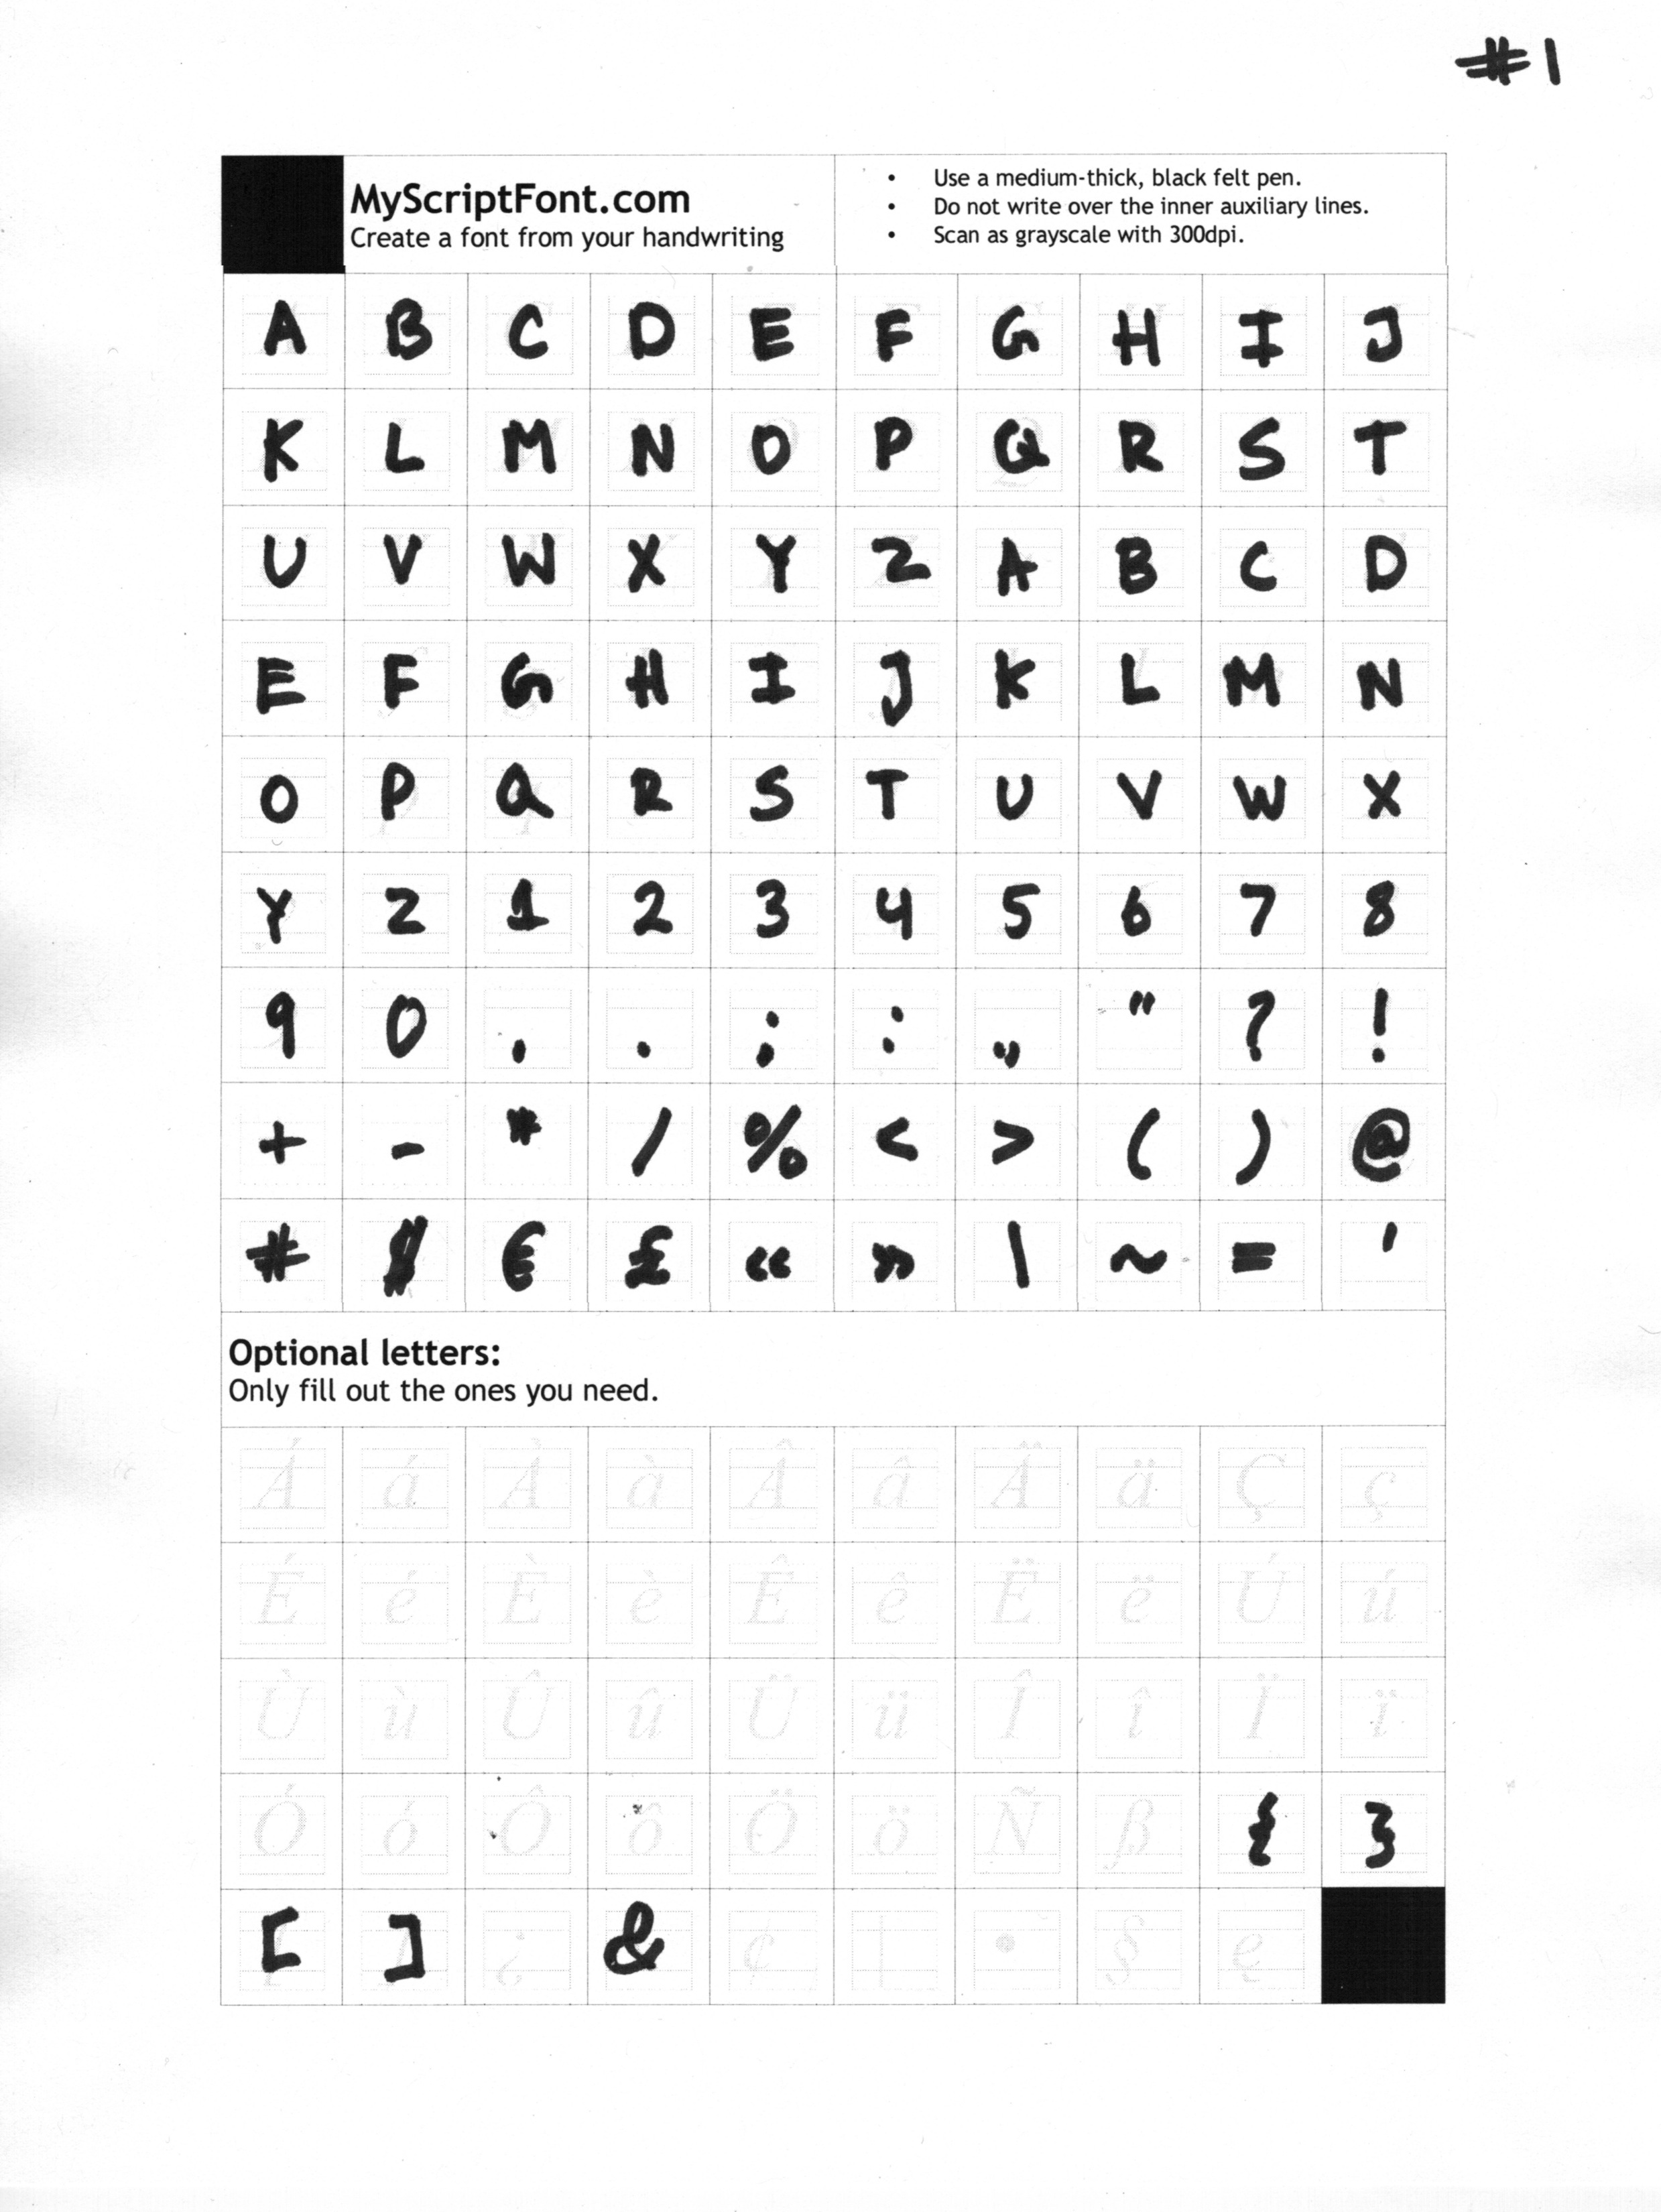 #1
MyScriptFont.com
Create a font from your handwriting
• Use a medium-thick, black felt pen.
• Do not write over the inner auxiliary lines.
• Scan as grayscale with 300dpi.
A B C D E F G H I J
K L M N O P Q R S T
U V W X Y Z A B C D
E F G H I J K L M N
O P Q R S T U V W X
Y Z 1 2 3 4 5 6 7 8
9 0 , . ; : „ " ? !
+ - * / % < > ( ) @
# $ € £ « » | ~ = '
Optional letters:
Only fill out the ones you need.
Á á À à Â â Ä ä Ç ç
É é È è Ê ê Ë ë Ú ú
Ù ù Û û Ü ü Î î Ï ï
Ó ó Ô ô Ö ö Ñ ß { }
[ ] ¿ & ¢ | • § ę